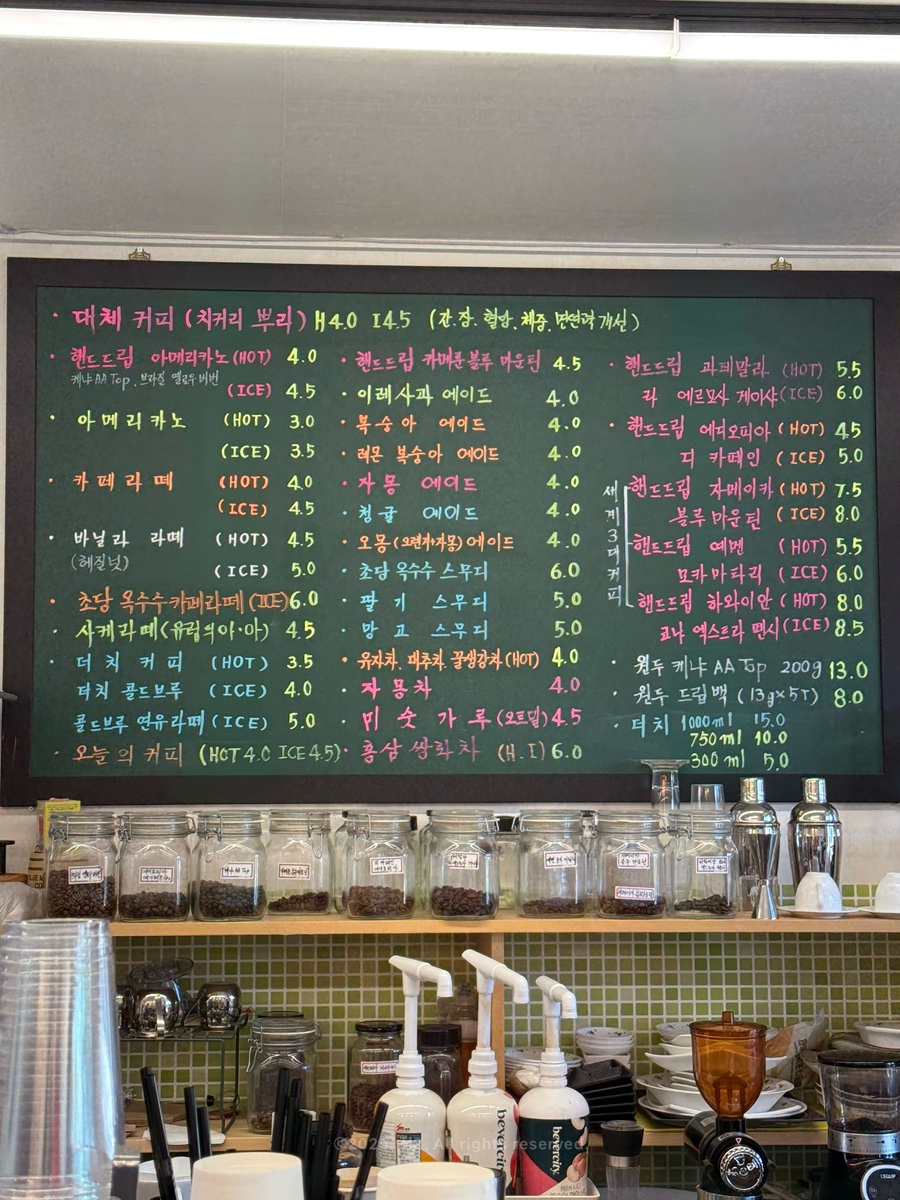 · 대체 커피 (치커리 뿌리) H4.0 I4.5 (간.장. 혈당. 체중. 면연력 개선)
· 핸드드립 아메리카노 (HOT) 4.0
케냐 AA Top, 브라질 옐로우 버번
(ICE) 4.5
· 아메리카노 (HOT) 3.0
(ICE) 3.5
· 카페라떼 (HOT) 4.0
(ICE) 4.5
· 바닐라 라떼 (HOT) 4.5
(헤질넛) (ICE) 5.0
· 초당 옥수수카페라떼 (ICE) 6.0
· 사케라떼 (유럽의아·아) 4.5
· 더치 커피 (HOT) 3.5
더치 콜드브루 (ICE) 4.0
콜드브루 연유라떼 (ICE) 5.0
· 오늘의 커피 (HOT 4.0 ICE 4.5)
· 핸드드립 카메룬 블루 마운틴 4.5
· 이레사과 에이드 4.0
· 복숭아 에이드 4.0
· 레몬 복숭아 에이드 4.0
· 자몽 에이드 4.0
· 청귤 에이드 4.0
· 오몽(오렌지자몽)에이드 4.0
· 초당 옥수수 스무디 6.0
· 딸기 스무디 5.0
· 망고 스무디 5.0
· 유자차. 대추차. 꿀생강차 (HOT) 4.0
· 자몽차 4.0
· 미숫가루 (오트밀) 4.5
· 홍삼 쌍화차 (H.I) 6.0
· 핸드드립 과테말라 (HOT) 5.5
라 에르모사 게이샤 (ICE) 6.0
· 핸드드립 에디오피아 (HOT) 4.5
디 카페인 (ICE) 5.0
세계3대커피
핸드드립 자메이카 (HOT) 7.5
블루마운틴 (ICE) 8.0
핸드드립 예멘 (HOT) 5.5
모카마타리 (ICE) 6.0
핸드드립 하와이안 (HOT) 8.0
코나 엑스트라 팬시 (ICE) 8.5
· 원두 케냐 AA Top 200g 13.0
· 원두 드립백 (13g×5T) 8.0
· 더치 1000ml 15.0
750ml 10.0
300ml 5.0
케냐 AA Top
bevercity
bevercity
L'EQUIP
All rights reserved